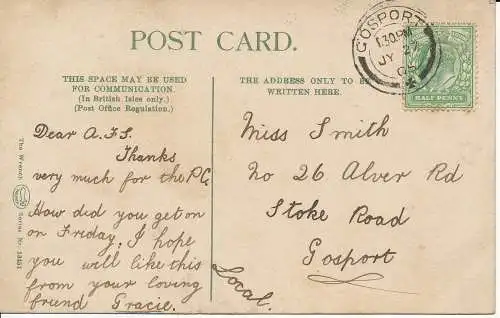 POST CARD.
THIS SPACE MAY BE USED
FOR COMMUNICATION.
(In British Isles only.)
(Post Office Regulation.)
THE ADDRESS ONLY TO BE
WRITTEN HERE.
GOSPORT
1.30 PM
JY 27
HALF PENNY
The Wrench
Series, No.
Dear A.F.S.
Thanks
very much for the P.C.
How did you get on
on Friday. I hope
you will like this
from your loving
friend Gracie.
Local.
Miss Smith
No 26 Alver Rd
Stoke Road
Gosport